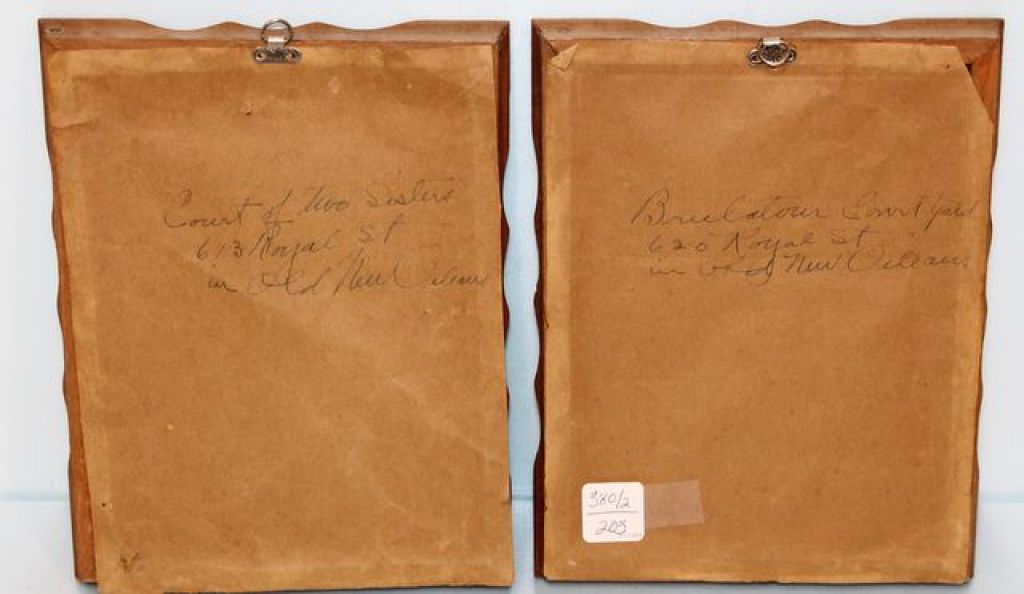 Court of Two Sisters
613 Royal St
in Old New Orleans
Brulatour Court yard
620 Royal St
in Old New Orleans
380/2
203